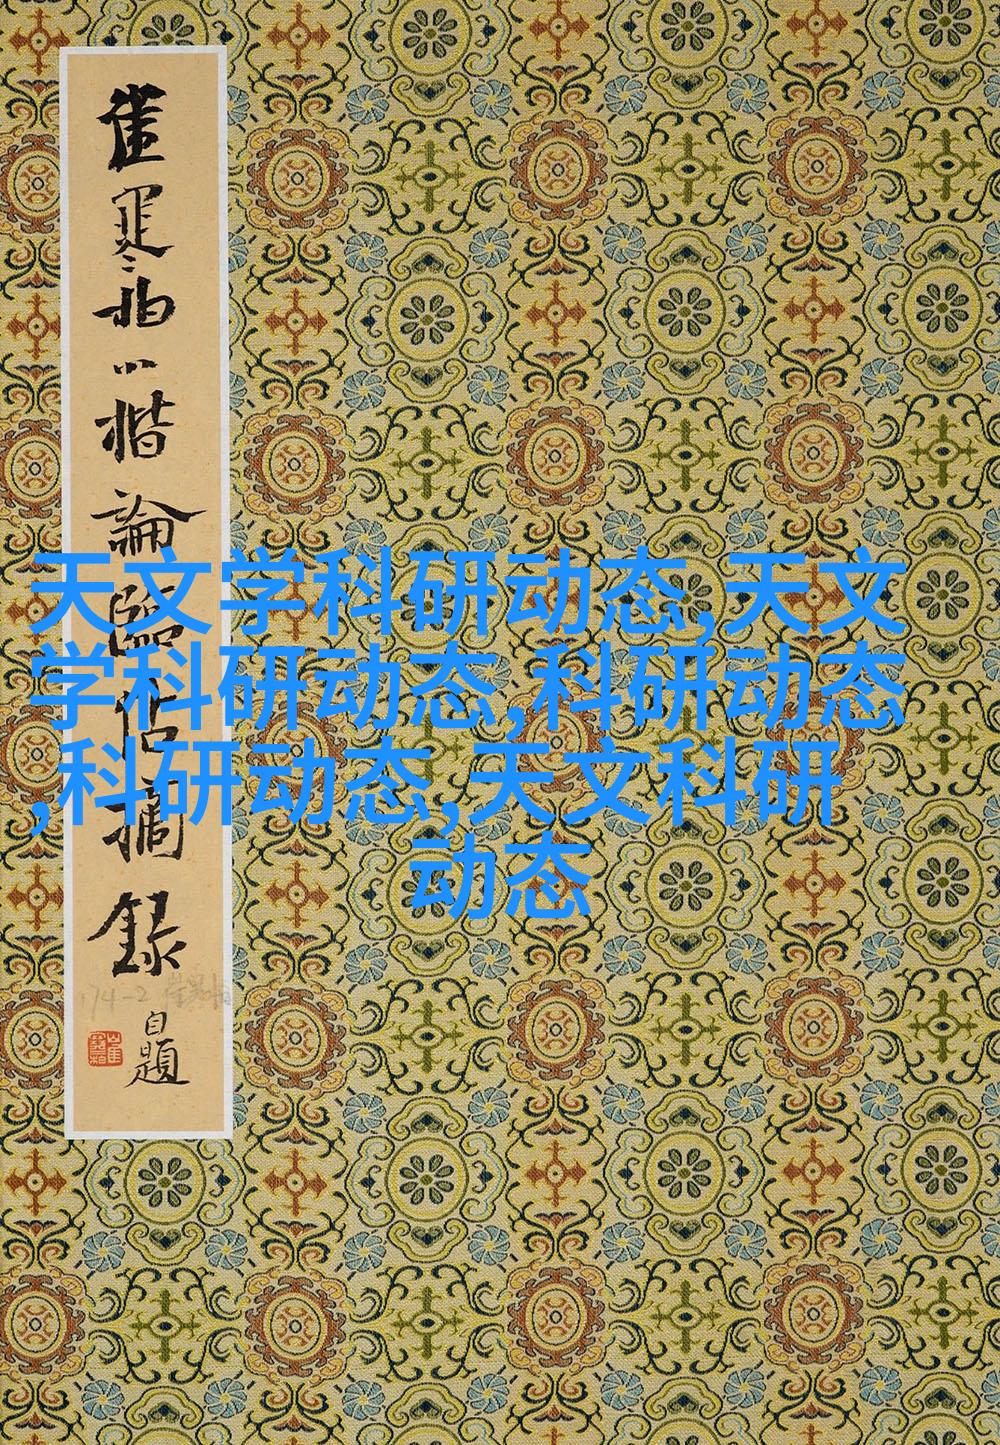 崔寒柏小楷論臨帖摘錄
自題
天文学科研动态,天文
学科研动态,科研动态
,科研动态,天文科研
动态